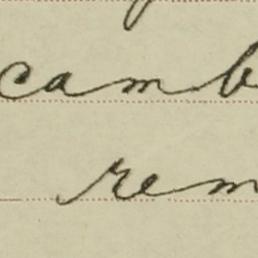 camb
rem